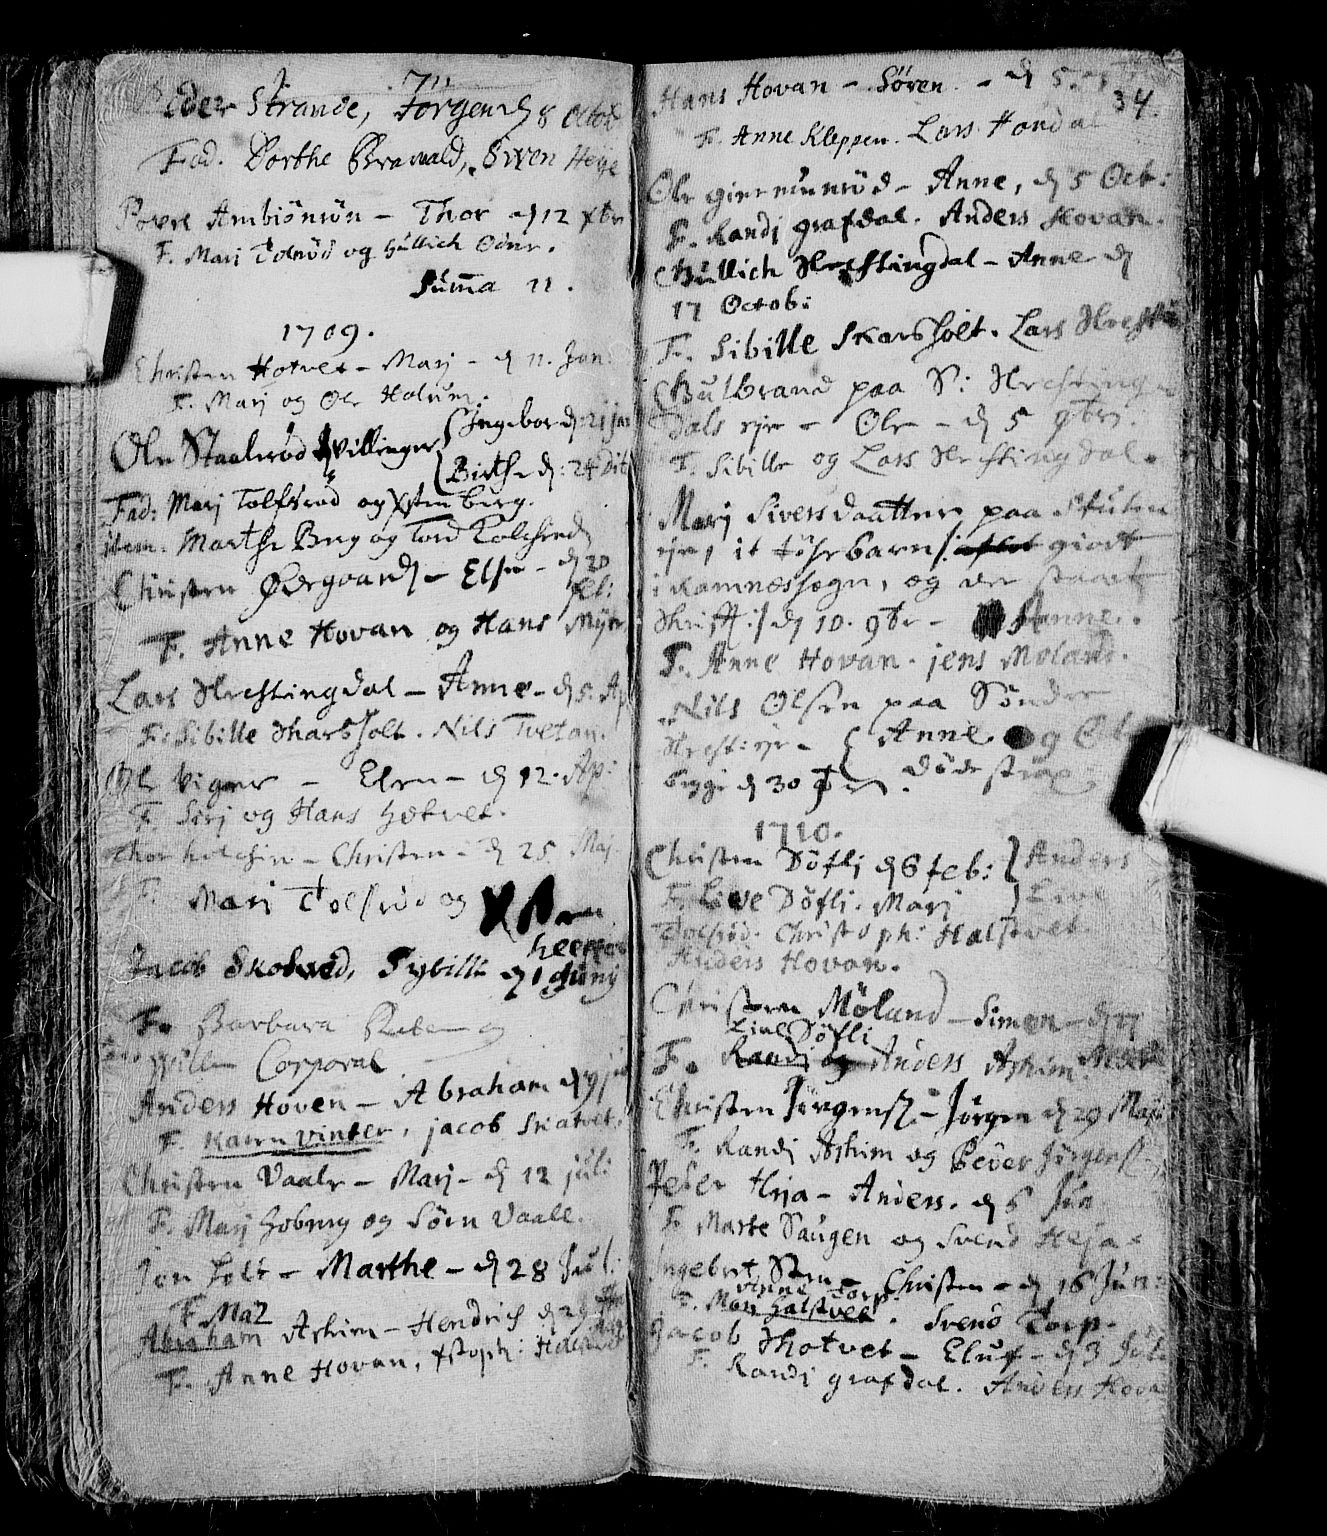 Peder Strande, Jorgen d 8 Octob
Fad. Dorthe Brawald, Swen Heije
Povel Ambiönsön – Thor d 12 xbr
F. Marj Tolsröd og Gullich Odnr.
Suma 11.
1709.
Christen Hotvet – Marj – d 11. Jan:
F. Marj og Ole Holum.
Ole Staalsröd Tvillinger Ingebor d: 21 jan
Birthe d: 24 dit
Fad: Marj Tolfsröd og Xsten berg.
item. Marthe Berg og Tord
Christen Øfregaard – Else – d 20
feb:
F. Anne Hovan og Hans Myre
Lars Hrestingdal – Anne – d 5. Ap
F. Sibille Skarsholt. Nils Tvetan.
Ole Viger – Elen – d 12. Ap:
F. Sirj og Hans Hotvet.
Thor – Christen – d 25. Maj.
F. Marj Tolsröd og Xsten
Jacob Skotved, Sybille d 1 Junij
F. Barbara og
Willem Corporal
Anders Hoven – Abraham d 9 ju
F. Karen Vinter, jacob Skatvet.
Christen Vaale – Marj – d 12 juli
F. Marj og Sörn Vaale.
Jon Holt – Marthe – d 28 Jul:
F. Mar
Abraham Askim – Hendrich d 29
Aug
F. Anne Hovan, Xstoph: Halstvet
34
Hans Hovan – Sören – d 5.
F. Anne Kleppen. Lars Hondal
Ole giermunröd – Anne, d 5 Oct:
F. Randj grafdal. Anders Hovan.
Gullich Hrestingdal – Anne d
17 Octob:
F. Sibille Skarsholt. Lars Hresti
Gulbrand paa S: Hresting
dals eje – Ole – d 5 9br.
F. Sibille og Lars Hrestingdal.
Marj Sivers daatter paa Skulen
eje, it Löhsbarn /: giort
i Ramnessogn, og der staaet
Skrifft :/ d 10. 9br – Anne.
F. Anne Hovan. jens Moland.
Nils Olsen paa Söndre
Hrest: eje – Anne og Ol
begge d 30 9br. döde strax
1710.
Christen Döflj d 6 feb: Anders
F. Live Döflj. Marj Live
Tolsröd. Christoph: Halstvet.
Anders Hovan.
Christen Möland – Simon – d 17
Live Döflj
F. Randj og Anders Askim.
Christen Jörgens. – Jörgen d 29 Maj
F. Randj Askim og Peder Jörgens.
Peder Heja – Anders. d 6 Jun
F. Marte Haugen og Svend Heja.
Ingebret Sten – Christen – d 16 Jun:
Anne Torp.
F. Marj Halstvet. Svend Torp.
Jacob Skotvet – Eluf – d 3 Jul
F. Randj grafdal. Anders Hova